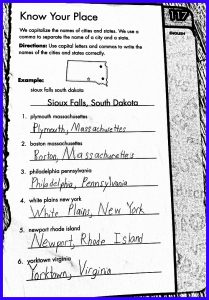 Know Your Place
117
ENGLISH
We capitalize the names of cities and states. We use a
comma to separate the name of a city and a state.
Directions: Use capital letters and commas to write the
names of the cities and states correctly.
Example:
sioux falls south dakota
Sioux Falls, South Dakota
1. plymouth massachusettes
Plymouth, Massachusettes
2. boston massachusettes
Boston, Massachusettes
3. philadelphia pennsylvania
Philadelphia, Pennsylvania
4. white plains new york
White Plains, New York
5. newport rhode island
Newport, Rhode Island
6. yorktown virginia
Yorktown, Virginia